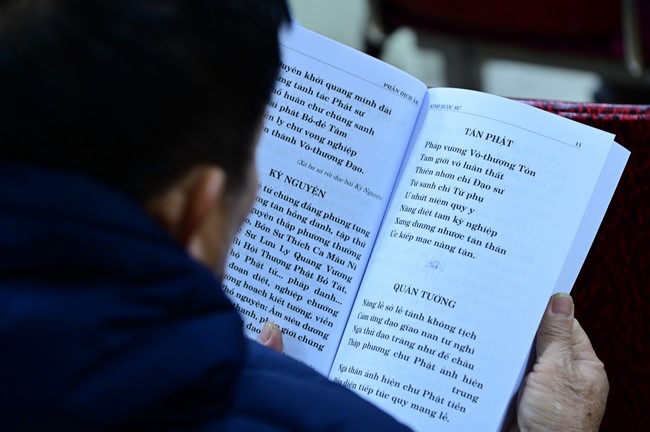 PHẦN DỊCH ÂM
khởi quang minh đài
tánh tác Phật sự
huân chư chúng sanh
phát Bồ-đề Tâm
ly chư vọng nghiệp
thành Vô-thượng Đạo.
(Xá ba xá rồi đọc bài Kỳ Nguyện)
KỲ NGUYỆN
tử chúng đẳng phúng tụng
tán hồng danh, tập thử
nguyện thập phương thường
Bổn Sư Thích Ca Mâu Ni
Lưu Ly Quang Vương
Hội Thượng Phật Bồ Tát,
hộ Phật từ... pháp danh...
đoạn diệt, nghiệp chướng
hoạch kiết tường, viên
nguyện: Âm siêu dương
giới chúng
KINH DƯỢC SƯ
11
TÁN PHẬT
Pháp vương Vô-thượng Tôn
Tam giới vô luân thất
Thiên nhơn chi Đạo sư
Tứ sanh chi Từ phụ
Ư nhứt niệm quy y
Năng diệt tam kỳ nghiệp
Xưng dương nhược tán thán
Ức kiếp mạc năng tận.
QUÁN TƯỞNG
Năng lễ sở lễ tánh không tịch
Cảm ứng đạo giao nan tư nghì
Ngã thử đạo tràng như đế châu
Thập phương chư Phật ảnh hiện
trung
Ngã thân ảnh hiện chư Phật tiền
diện tiếp túc quy mạng lễ.